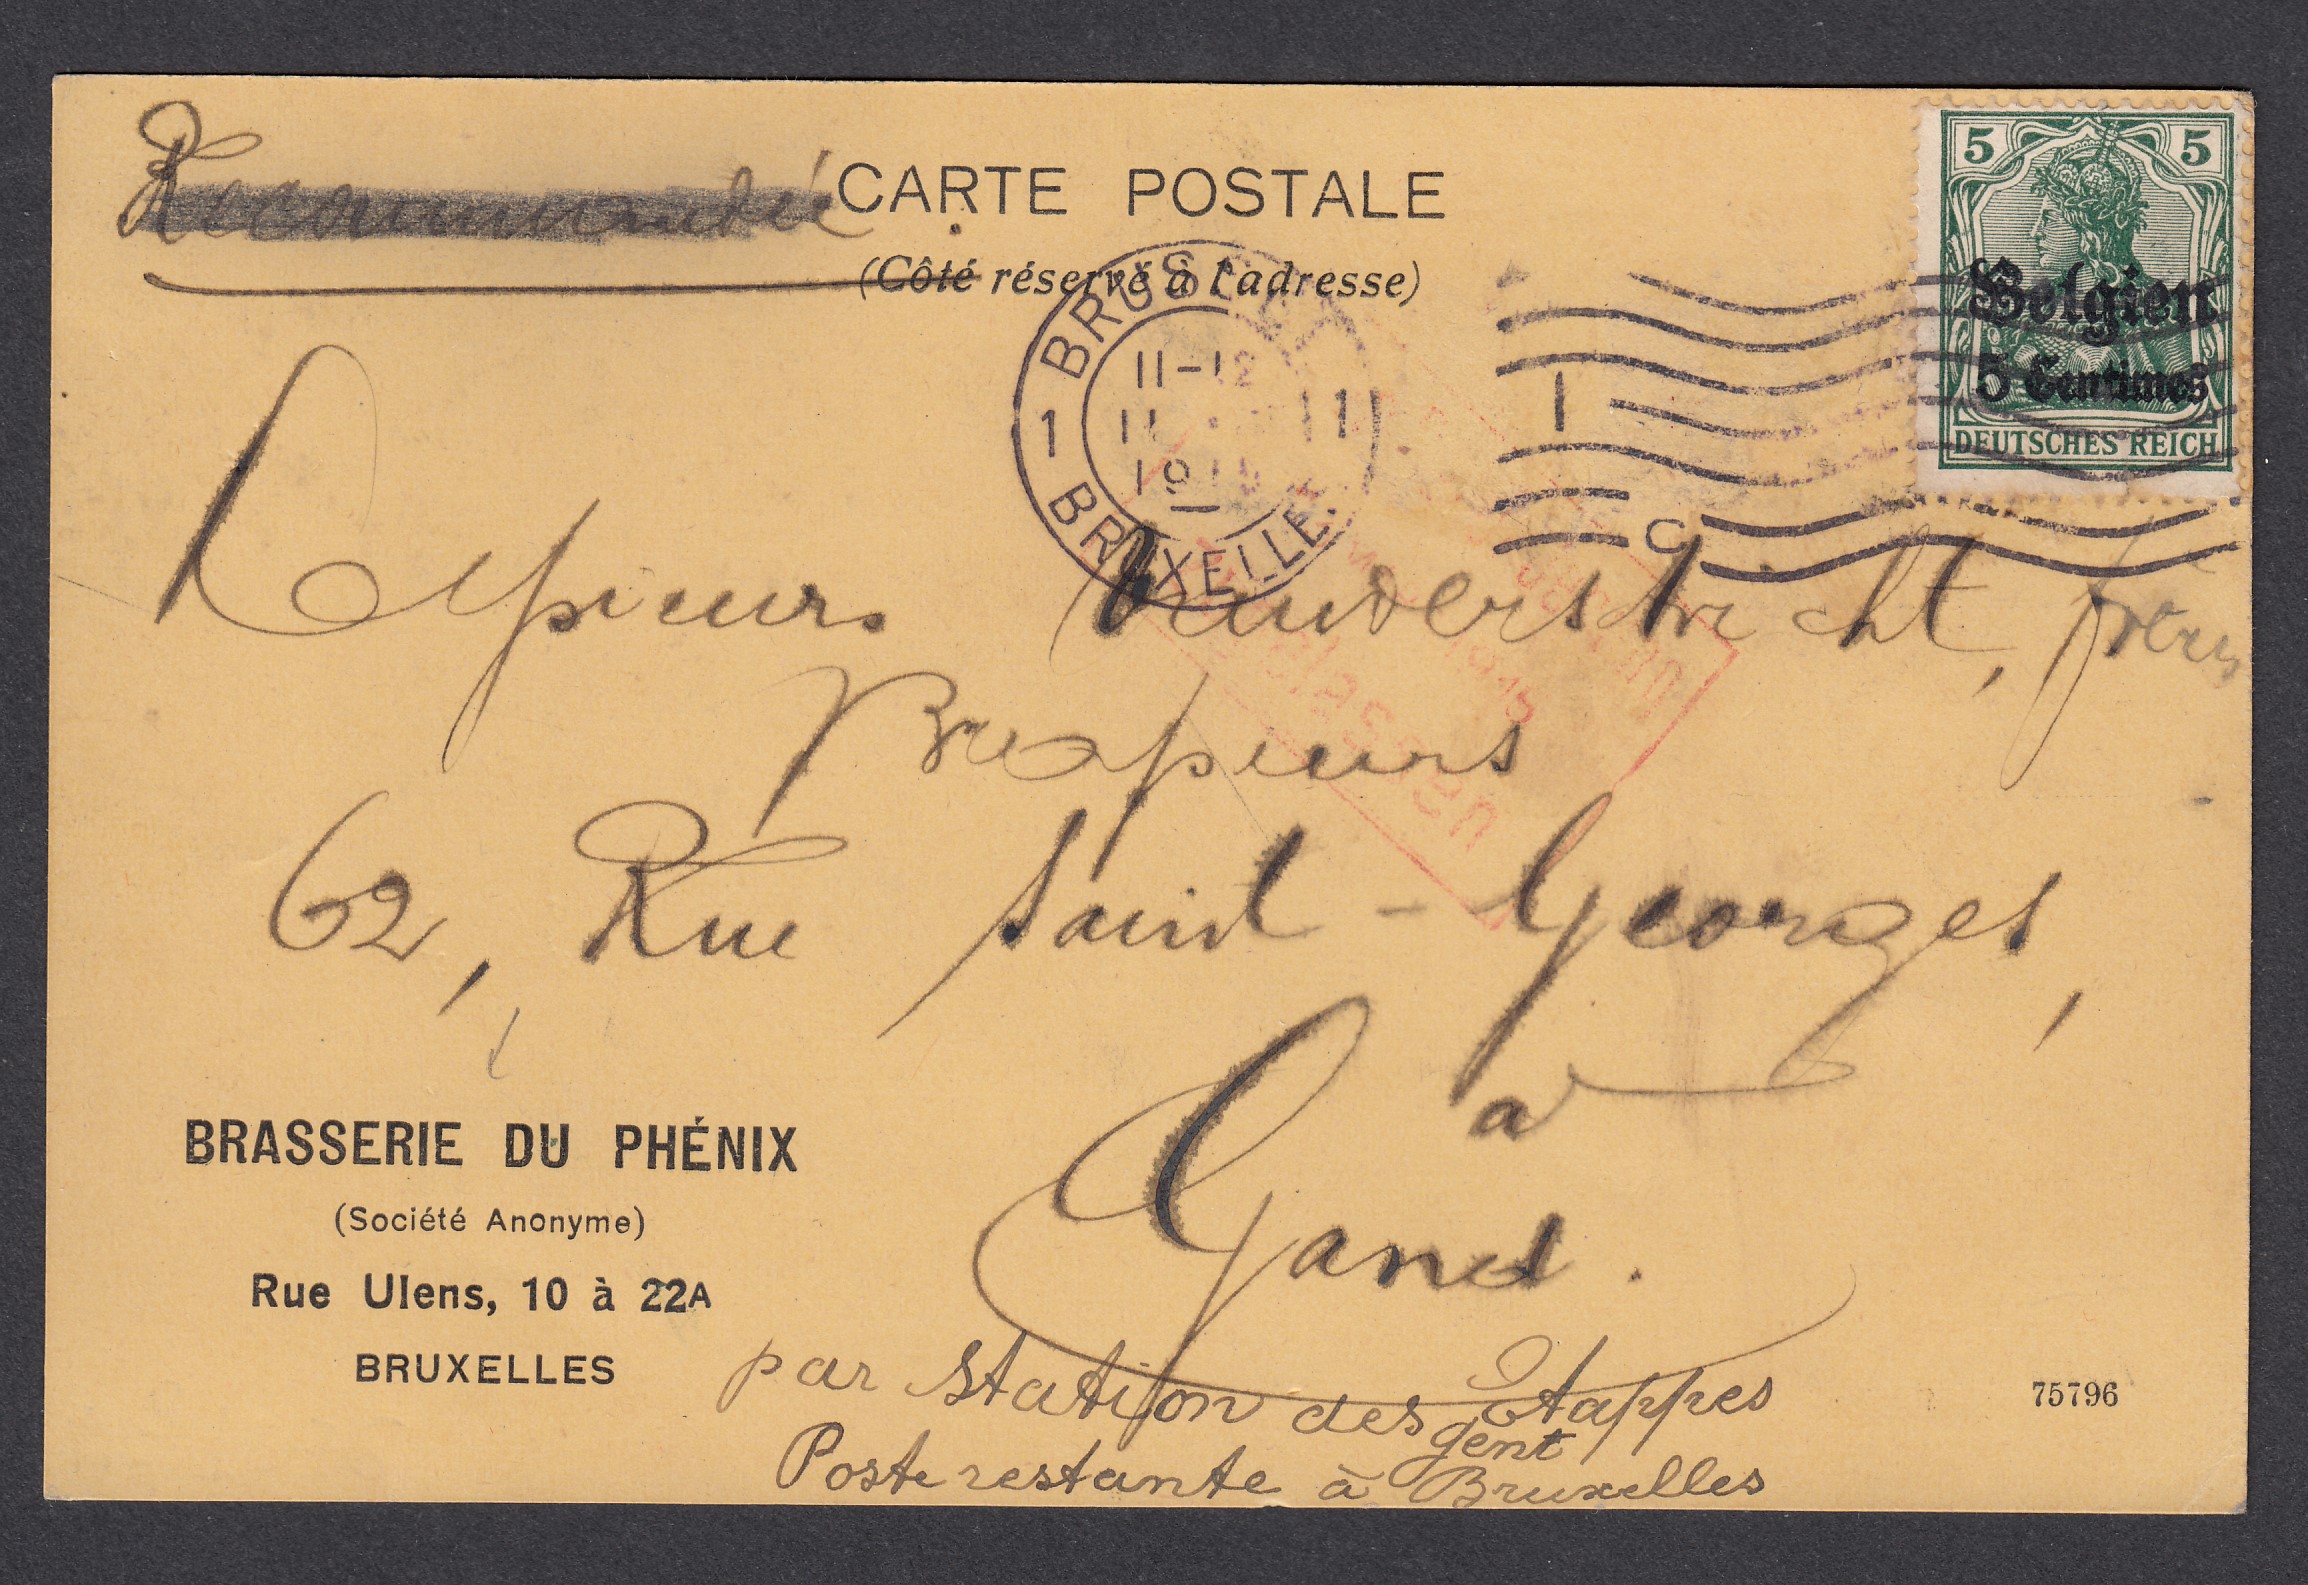 Recommandée
CARTE POSTALE
(Côté réservé à l'adresse)
5 5
Belgien
5 Centimes
DEUTSCHES REICH
BRUSSEL
11-12
1 11 1
19
BRUXELLE
Messieurs Vanderstricht, frères
Brasseurs
62, Rue Saint-Georges,
à
Gand.
BRASSERIE DU PHÉNIX
(Société Anonyme)
Rue Ulens, 10 à 22A
BRUXELLES
par station des étappes
gent
Poste restante à Bruxelles
75796